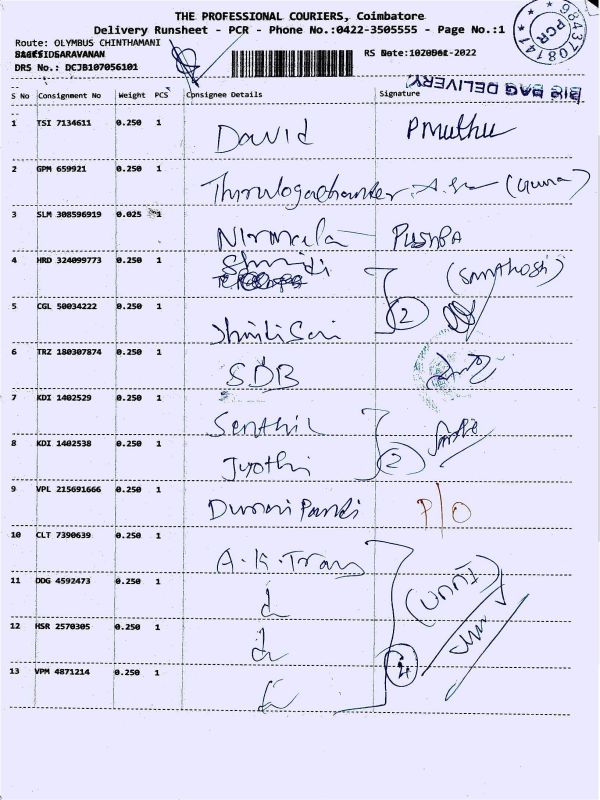 THE PROFESSIONAL COURIERS, Coimbatore
Delivery Runsheet - PCR - Phone No.:0422-3505555 - Page No.:1
Route: OLYMBUS CHINTHAMANI
RS
DRS No.: DCJB107056101
9843708141
PCR
BIG BAG DELIVERY
S No Consignment No Weight PCS Consignee Details Signature
1 TSI 7134611 0.250 1 David PMuthu
2 GPM 659921 0.250 1
3 SLM 308596919 0.025 1 Nirmala PUSHPA
4 HRD 324099773 0.250 1 (SANTHOSH)
5 CGL 50034222 0.250 1 2
6 TRZ 180307874 0.250 1 SDB
7 KDI 1402529 0.250 1 Senthil
8 KDI 1402538 0.250 1 Jyothi 2
9 VPL 215691666 0.250 1 P/O
10 CLT 7390639 0.250 1 A.K.Trans
11 DDG 4592473 0.250 1
12 HSR 2570305 0.250 1
13 VPM 4871214 0.250 1 4